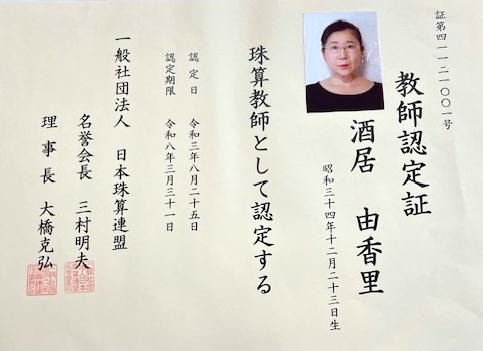 証第四一一二一〇〇一号
教師認定証
酒居　由香里
昭和三十四年十二月二十三日生
珠算教師として認定する
認定日　令和三年八月二十五日
認定期限　令和八年三月三十一日
一般社団法人　日本珠算連盟
名誉会長　三村明夫
理事長　大橋克弘